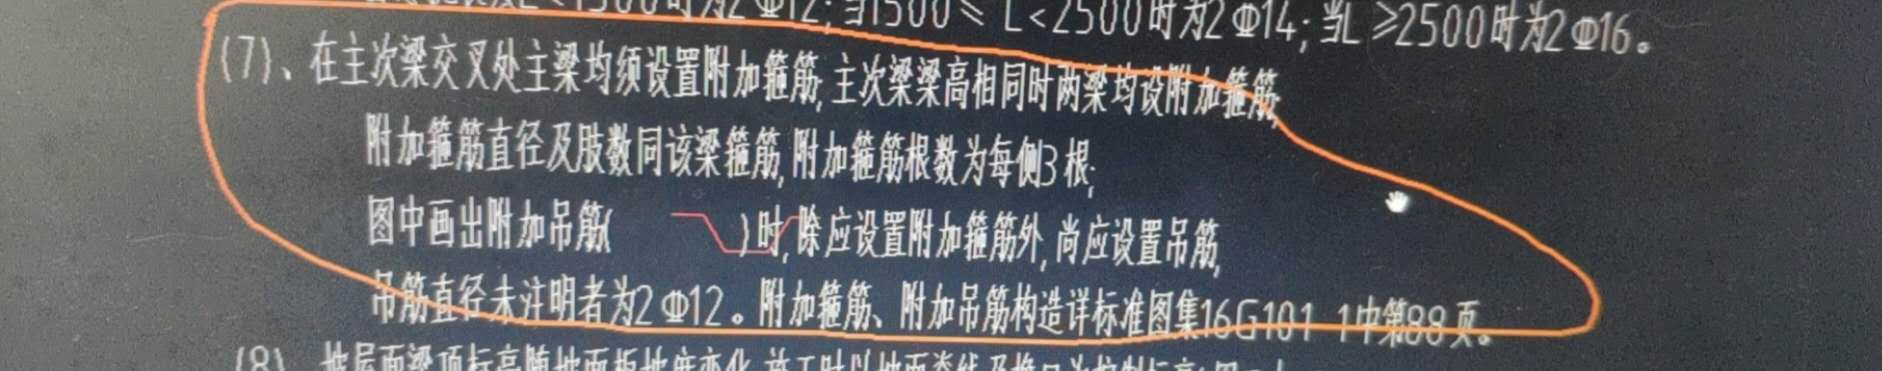 1500时为2Φ12;当1500≤L<2500时为2Φ14;当L≥2500时为2Φ16。
(7)、在主次梁交叉处主梁均须设置附加箍筋,主次梁梁高相同时两梁均设附加箍筋,
附加箍筋直径及肢数同该梁箍筋,附加箍筋根数为每侧3根;
图中画出附加吊筋( )时,除应设置附加箍筋外,尚应设置吊筋,
吊筋直径未注明者为2Φ12。附加箍筋、附加吊筋构造详标准图集16G101-1中第88页。
(8)